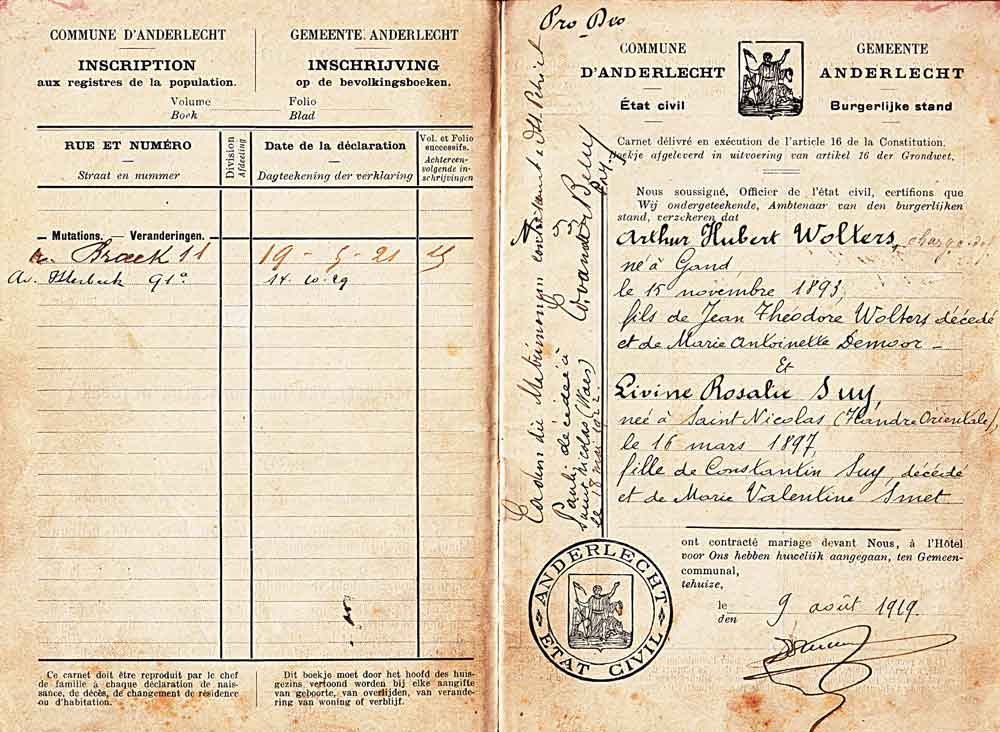 COMMUNE D'ANDERLECHT
INSCRIPTION
aux registres de la population.
GEMEENTE ANDERLECHT
INSCHRIJVING
op de bevolkingsboeken.
Volume Folio
Boek Blad
RUE ET NUMÉRO
Straat en nummer
Division
Afdeeling
Date de la déclaration
Dagteekening der verklaring
Vol. et Folio
successifs.
Achtereen-
volgende in-
schrijvingen
Mutations. — Veranderingen.
Broeck 11 19 - 5 - 21
Av. Itterbeek 91a 14.10.29
Ce carnet doit être reproduit par le chef
de famille à chaque déclaration de nais-
sance, de décès, de changement de résidence
ou d'habitation.
Dit boekje moet door het hoofd des huis-
gezins vertoond worden bij elke aangifte
van geboorte, van overlijden, van verande-
ring van woning of verblijf.
Pro Deo
Eadem die Matrimonium
décédée à
Saint Nicolas (Waes)
le 18 mai 1922
COMMUNE
D'ANDERLECHT
État civil
GEMEENTE
ANDERLECHT
Burgerlijke stand
Carnet délivré en exécution de l'article 16 de la Constitution.
Boekje afgeleverd in uitvoering van artikel 16 der Grondwet.
Nous soussigné, Officier de l'état civil, certifions que
Wij ondergeteekende, Ambtenaar van den burgerlijken
stand, verzekeren dat
Arthur Hubert Wolters,
né à Gand,
le 15 novembre 1893,
fils de Jean Théodore Wolters décédé
et de Marie Antoinette Demoor -
Et
Livine Rosalie Suy,
née à Saint Nicolas (Flandre Orientale),
le 16 mars 1897,
fille de Constantin Suy, décédé
et de Marie Valentine Smet
ont contracté mariage devant Nous, à l'Hôtel
voor Ons hebben huwelijk aangegaan, ten Gemeen-
communal,
tehuize,
le 9 août 1919.
den
ANDERLECHT
ETAT CIVIL